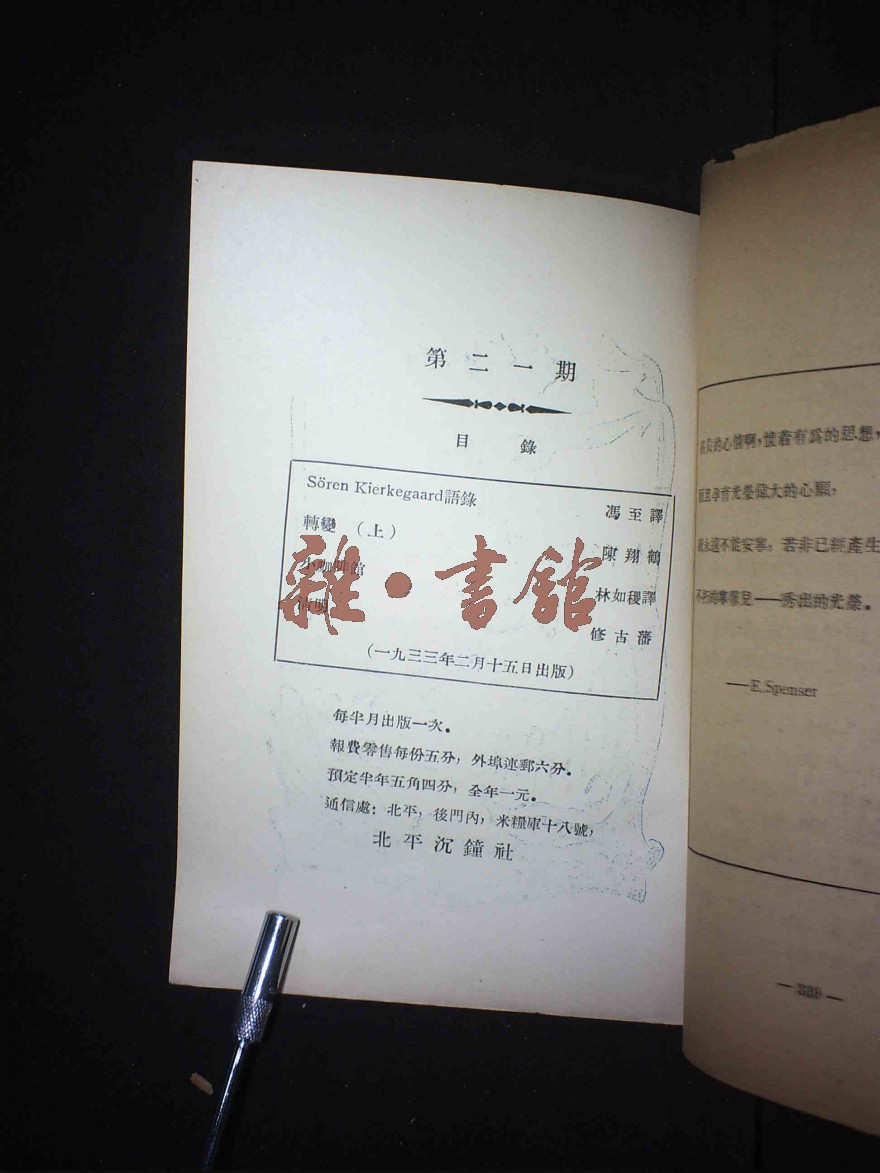 第二一期
目錄
Sören Kierkegaard語錄 馮至譯
轉變（上） 陳翔鶴
小咖啡館 林如稷譯
清明 修古藩
（一九三三年二月十五日出版）
每半月出版一次。
報費零售每份五分，外埠連郵六分。
預定半年五角四分，全年一元。
通信處：北平，後門內，米糧庫十八號，
北平沉鐘社
雜·書館
的心懷啊，懷着有爲的思想，
且孕育光榮偉大的心願，
永遠不能安寧，若非已經產生
不朽的寧馨兒——秀出的光榮。
——E.Spenser
— 339 —